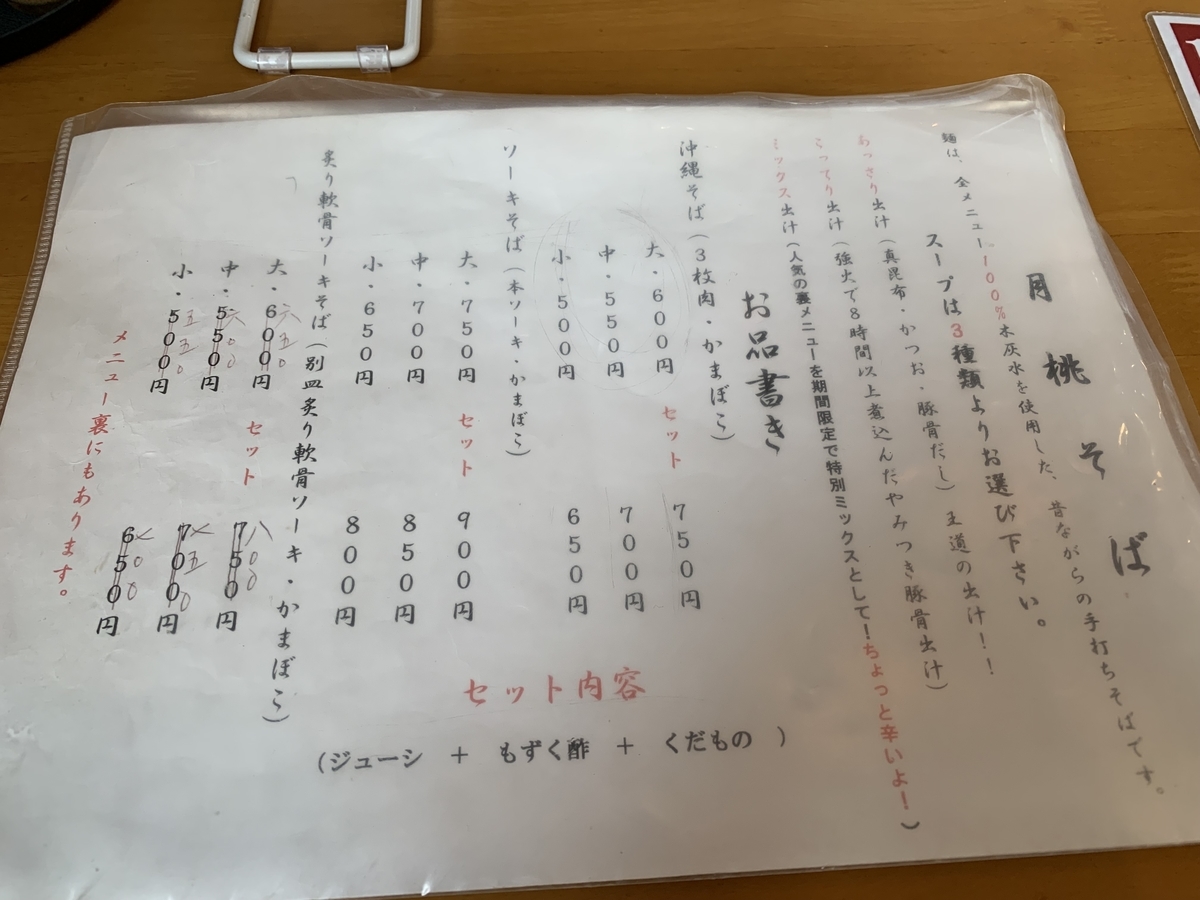 月桃そば
麺は、全メニュー100%木灰水を使用した、昔ながらの手打ちそばです。
スープは3種類よりお選び下さい。
あっさり出汁（真昆布・かつお・豚骨だし）王道の出汁！！
こってり出汁（強火で8時間以上煮込んだやみつき豚骨出汁）
ミックス出汁（人気の裏メニューを期間限定で特別ミックスとして！ちょっと辛いよ！）
お品書き
沖縄そば（3枚肉・かまぼこ）
大・600円 セット 750円
中・550円 700円
小・500円 650円
ソーキそば（本ソーキ・かまぼこ）
大・750円 セット 900円
中・700円 850円
小・650円 800円
炙り軟骨ソーキそば（別皿炙り軟骨ソーキ・かまぼこ）
大・600円 六五0 セット 750円 八00
中・550円 六00 700円 七五0
小・500円 五五0 650円 七00
メニュー裏にもあります。
セット内容
（ジューシ ＋ もずく酢 ＋ くだもの ）